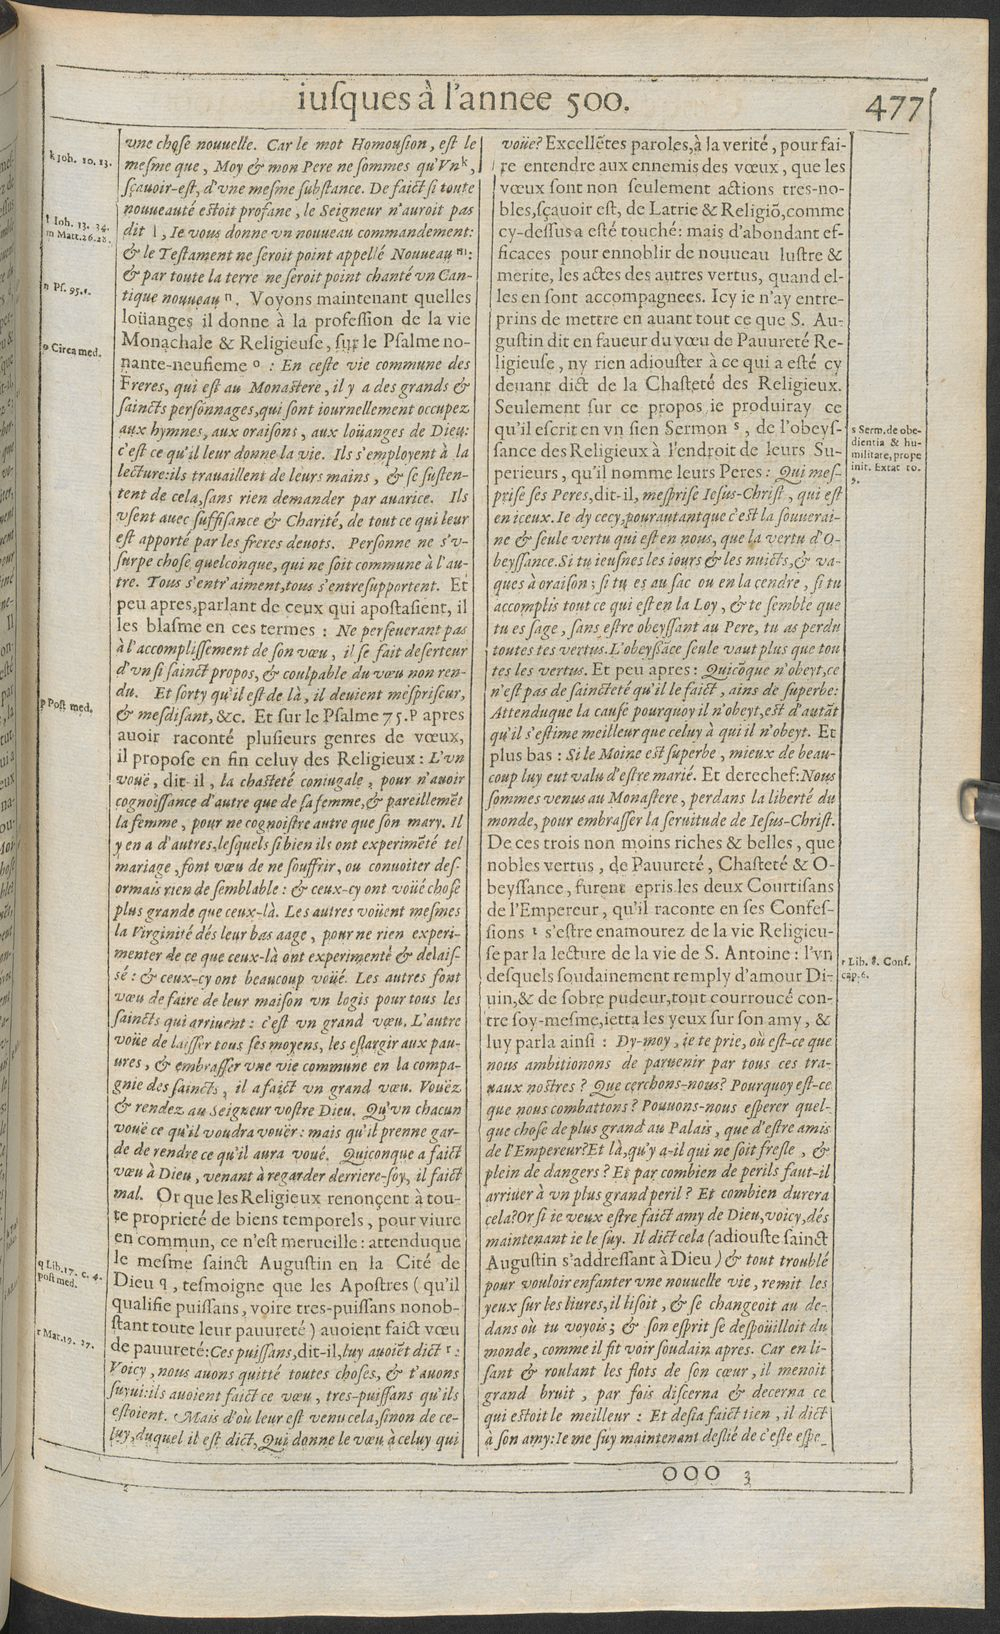 iuſques à l'annee 500.
477
vne choſe nouuelle. Car le mot Homouſion, eſt le
meſme que, Moy & mon Pere ne ſommes qu'Vn k,
ſçauoir-eſt, d'vne meſme ſubſtance. De faict ſi toute
nouueauté eſtoit profane, le Seigneur n'auroit pas
dit l, Ie vous donne vn nouueau commandement:
& le Teſtament ne ſeroit point appellé Nouueau m:
& par toute la terre ne ſeroit point chanté vn Can-
tique nouueau n. Voyons maintenant quelles
loüanges il donne à la profeſſion de la vie
Monachale & Religieuſe, ſur le Pſalme no-
nante-neufieme o : En ceſte vie commune des
Freres, qui eſt au Monaſtere, il y a des grands &
ſaincts perſonnages, qui ſont iournellement occupez
aux hymnes, aux oraiſons, aux loüanges de Dieu:
c'eſt ce qu'il leur donne la vie. Ils s'employent à la
lecture: ils trauaillent de leurs mains, & ſe ſuſten-
tent de cela, ſans rien demander par auarice. Ils
vſent auec ſuffiſance & Charité, de tout ce qui leur
eſt apporté par les freres deuots. Perſonne ne s'v-
ſurpe choſe quelconque, qui ne ſoit commune à l'au-
tre. Tous s'entr'aiment, tous s'entreſupportent. Et
peu apres, parlant de ceux qui apoſtaſient, il
les blaſme en ces termes : Ne perſeuerant pas
à l'accompliſſement de ſon vœu, il ſe fait deſerteur
d'vn ſi ſainct propos, & coulpable du vœu non ren-
du. Et ſorty qu'il eſt de là, il deuient meſpriſeur,
& meſdiſant, &c. Et ſur le Pſalme 75. p apres
auoir raconté pluſieurs genres de vœux,
il propoſe en fin celuy des Religieux : L'vn
vouë, dit-il, la chaſteté coniugale, pour n'auoir
cognoiſſance d'autre que de ſa femme, & pareillemẽt
la femme, pour ne cognoiſtre autre que ſon mary. Il
y en a d'autres, leſquels ſi bien ils ont experimẽté tel
mariage, font vœu de ne ſouffrir, ou conuoiter deſ-
ormais rien de ſemblable : & ceux-cy ont voüé choſe
plus grande que ceux-là. Les autres voüent meſmes
la Virginité dés leur bas aage, pour ne rien experi-
menter de ce que ceux-là ont experimenté & delaiſ-
ſé : & ceux-cy ont beaucoup voüé. Les autres font
vœu de faire de leur maiſon vn logis pour tous les
ſaincts qui arriuent : c'eſt vn grand vœu. L'autre
voüe de laiſſer tous ſes moyens, les eſlargir aux pau-
ures, & embraſſer vne vie commune en la compa-
gnie des ſaincts, il a faict vn grand vœu. Vouëz
& rendez au Seigneur voſtre Dieu. Qu'vn chacun
vouë ce qu'il voudra vouër : mais qu'il prenne gar-
de de rendre ce qu'il aura voué. Quiconque a faict
vœu à Dieu, venant à regarder derriere-ſoy, il faict
mal. Or que les Religieux renonçent à tou-
te proprieté de biens temporels, pour viure
en commun, ce n'eſt merueille : attenduque
le meſme ſainct Auguſtin en la Cité de
Dieu q, teſmoigne que les Apoſtres (qu'il
qualifie puiſſans, voire tres-puiſſans nonob-
ſtant toute leur pauureté) auoient faict vœu
de pauureté: Ces puiſſans, dit-il, luy auoiẽt dict r :
Voicy, nous auons quitté toutes choſes, & t'auons
ſuyui: ils auoient faict ce vœu, tres-puiſſans qu'ils
eſtoient. Mais d'où leur eſt venu cela, ſinon de ce-
luy, duquel il eſt dict, Qui donne le vœu à celuy qui
k Joh. 10. 13.
l Ioh. 13. 34.
m Matt. 26. 28.
n Pſ. 95. 1.
o Circa med.
p Poſt med.
q Lib. 17. c. 4.
poſt med.
r Mat. 19. 27.
voüe? Excellẽtes paroles, à la verité, pour fai-
re entendre aux ennemis des vœux, que les
vœux ſont non ſeulement actions tres-no-
bles, ſçauoir eſt, de Latrie & Religiõ, comme
cy-deſſus a eſté touché: mais d'abondant ef-
ficaces pour ennoblir de nouueau luſtre &
merite, les actes des autres vertus, quand el-
les en ſont accompagnees. Icy ie n'ay entre-
prins de mettre en auant tout ce que S. Au-
guſtin dit en faueur du vœu de Pauureté Re-
ligieuſe, ny rien adiouſter à ce qui a eſté cy
deuant dict de la Chaſteté des Religieux.
Seulement ſur ce propos ie produiray ce
qu'il eſcrit en vn ſien Sermon s, de l'obeyſ-
ſance des Religieux à l'endroit de leurs Su-
perieurs, qu'il nomme leurs Peres : Qui meſ-
priſe ſes Peres, dit-il, meſpriſe Ieſus-Chriſt, qui eſt
en iceux. Ie dy cecy, pourautantque c'eſt la ſouuerai-
ne & ſeule vertu qui eſt en nous, que la vertu d'O-
beyſſance. Si tu ieuſnes les iours & les nuicts, & va-
ques à oraiſon; ſi tu es au ſac ou en la cendre, ſi tu
accomplis tout ce qui eſt en la Loy, & te ſemble que
tu es ſage, ſans eſtre obeyſſant au Pere, tu as perdu
toutes tes vertus. L'obeyſſãce ſeule vaut plus que tou
tes les vertus. Et peu apres : Quicõque n'obeyt, ce
n'eſt pas de ſaincteté qu'il le faict, ains de ſuperbe:
Attenduque la cauſe pourquoy il n'obeyt, eſt d'autãt
qu'il s'eſtime meilleur que celuy à qui il n'obeyt. Et
plus bas : Si le Moine eſt ſuperbe, mieux de beau-
coup luy eut valu d'eſtre marié. Et derechef: Nous
ſommes venus au Monaſtere, perdans la liberté du
monde, pour embraſſer la ſeruitude de Ieſus-Chriſt.
De ces trois non moins riches & belles, que
nobles vertus, de Pauureté, Chaſteté & O-
beyſſance, furent epris les deux Courtiſans
de l'Empereur, qu'il raconte en ſes Confeſ-
ſions t s'eſtre enamourez de la vie Religieu-
ſe par la lecture de la vie de S. Antoine : l'vn
deſquels ſoudainement remply d'amour Di-
uin, & de ſobre pudeur, tout courroucé con-
tre ſoy-meſme, ietta les yeux ſur ſon amy, &
luy parla ainſi : Dy-moy, ie te prie, où eſt-ce que
nous ambitionons de paruenir par tous ces tra-
uaux noſtres ? Que cerchons-nous? Pourquoy eſt-ce
que nous combattons ? Pouuons-nous eſperer quel-
que choſe de plus grand au Palais, que d'eſtre amis
de l'Empereur? Et là, qu'y a-il qui ne ſoit freſle, &
plein de dangers ? Et par combien de perils faut-il
arriuer à vn plus grand peril ? Et combien durera
cela? Or ſi ie veux eſtre faict amy de Dieu, voicy, dés
maintenant ie le ſuy. Il dict cela (adiouſte ſainct
Auguſtin s'addreſſant à Dieu) & tout troublé
pour vouloir enfanter vne nouuelle vie, remit les
yeux ſur les liures, il liſoit, & ſe changeoit au de-
dans où tu voyois; & ſon eſprit ſe deſpoüilloit du
monde, comme il fit voir ſoudain apres. Car en li-
ſant & roulant les flots de ſon cœur, il menoit
grand bruit, par fois diſcerna & decerna ce
qui eſtoit le meilleur : Et deſia faict tien, il dict
à ſon amy: Ie me ſuy maintenant deſlié de c'eſte eſpe-
s Serm. de obe-
dientia & hu-
militate, prope
init. Extat to.
9.
t Lib. 8. Conf.
cap. 6.
OOO 3